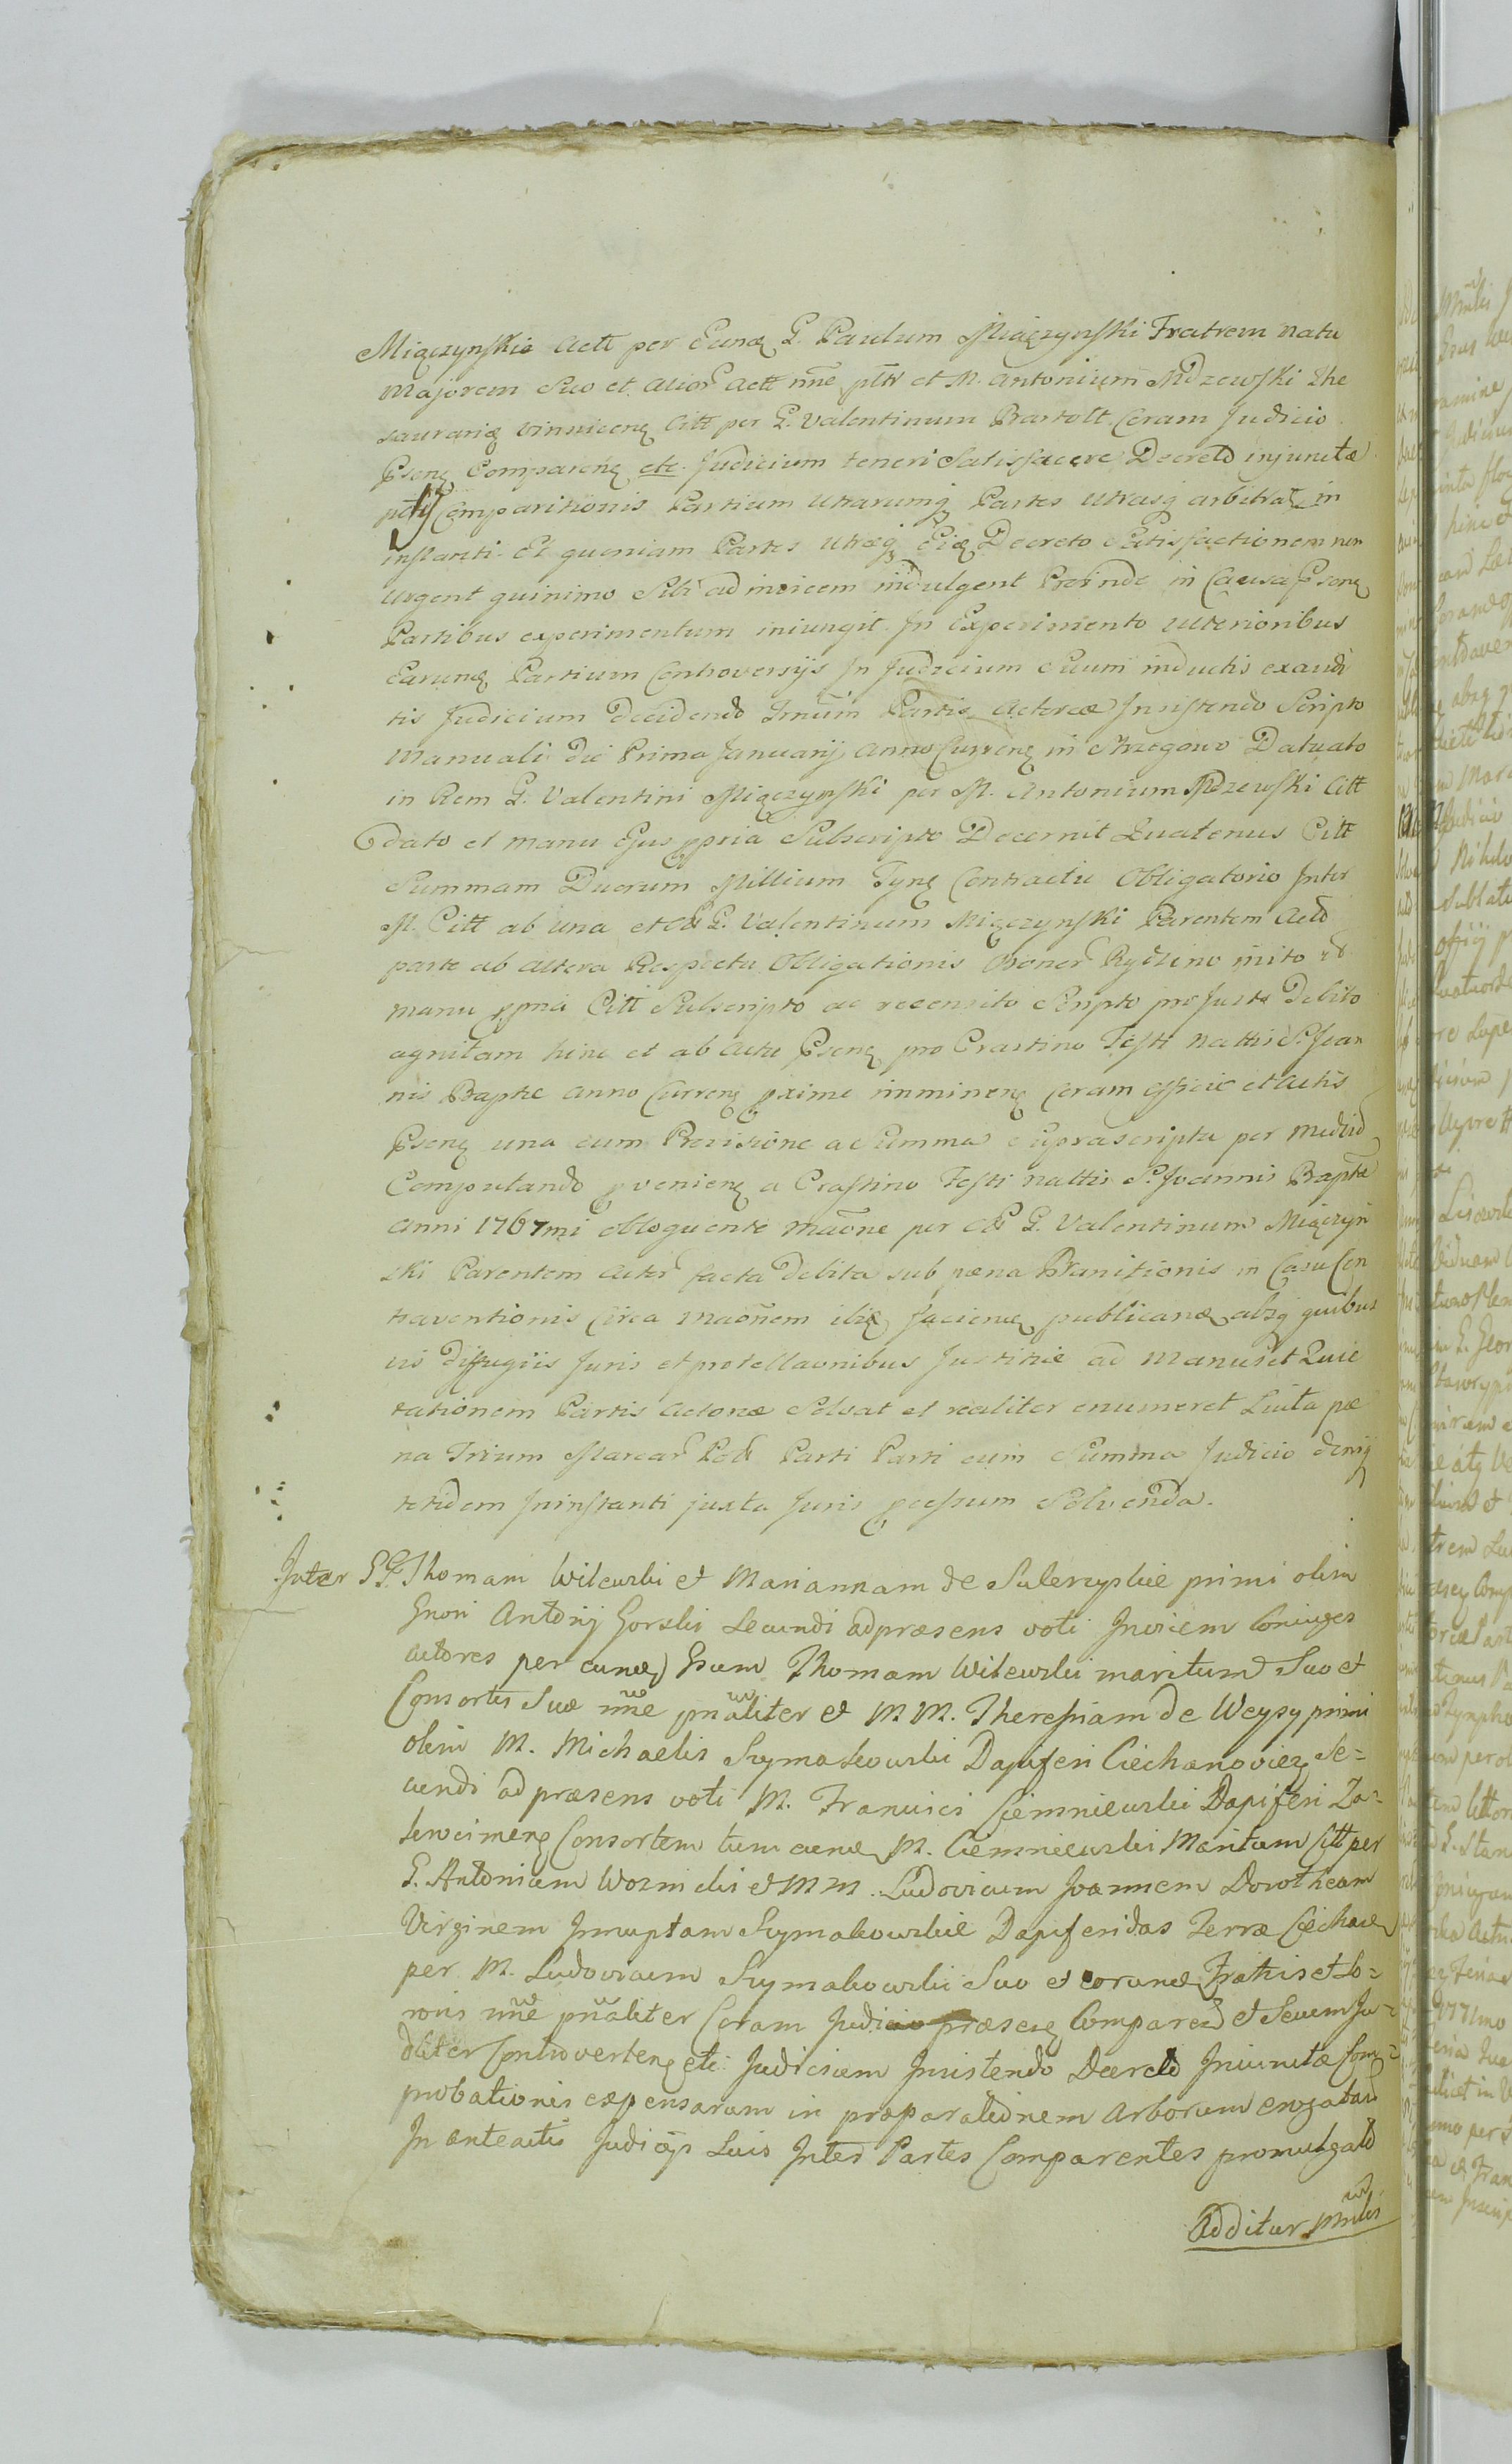 Miączynskie Actt per Eund G. Paulum Miączynski Fratrem natu
Majorem Suo et alior Actt nne pttr et M. Antonium Mdzewski The
saurarig vinnicens Citt per G. Valentinum Bartolt Coram Judicio
Psens Comparens etc. Judicium teneri Satisfacere Decreto injunctæ
Comparitionis Partium Utrarumq Partes Utrasq arbitrat in
instanti. Et quoniam Partes Utræq Eid Decreto Satisfactionem non
urgent quinimo Sibi ad invicem indulgent Proinde in Causa Psens
Partibus experimentum iniungit. In Experimento ulterioribus
Earund Partium Controversijs In Judicium Suum inductis exaudi
tis Judicium Decidendo Partis Actoreæ Insistendo Scripto
Manuali die Prima Januarij Anno Currens in Strzegowo Datuato
in Rem G. Valentini Miączynski per M. Antonium Mdzewski Citt
dato et manu Ejus ppria Subscripto Decernit Quatenus Citt
Summam Duorum Millium Tyns Contractu Obligatorio Inter
M. Citt ab una et G. Valentinum Miączynski Parentem Acto
parte ab altera Respectu Obligationis Bonor Rydzino inito et
manu ppria Citt Subscripto ac recensito Scripto pro Justo Debito
agnitam hinc et ab Actu Psens pro Crastino Festi Nattis S. Joan
nis Bapte Anno Currens pxime imminens Coram Officio et Actis
Psens una cum Provisione a Summa Suprascripta per medium
Computando pveniens a Crastino Festi nattis S. Joannis Bapte
Anni 1767mi obloquente maone per G. Valentinum Miączyn
ski Parentem Actor facta Debita sub pæna Bannitionis in Casu Con
traventionis Circa maonem ibid faciend publicand absq quibus
vis diffugiis Juris et protellaonibus Justitiæ ad Manus et Quie
tationem Partis Actoreæ Solvat et realiter enumeret Luita pæ
na Trium Marcar Pol Parti Parti cum Summa Judicio deniq
totidem Ininstanti juxta Juris pcessum Solvenda.
Inter GG. Thomam Wilewski et Mariannam de Sulerzyskie primi olim
Gnosi Antonij Gorski Secundi ad præsens voti Invicem Coniuges
Actores per eund Gsum Thomam Wilewski maritum Suo et
Consortis Suæ nne pnaliter et M M. Theressiam de Weysy primi
olim M. Michaelis Szymakowski Dapiferi Ciechanoviens Se=
cundi ad præsens voti M. Francisci Ciemniewski Dapiferi Za=
Consortem tum eund M. Ciemniewski Maritum Citt per
G. Antonium Woznicki et M M. Ludovicum Joannem Dorotheam
Virginem Innuptam Szymakowskie Dapiferidas Terræ Ciechan
per M. Ludovicum Szymakowski Suo et eorund Fratris et So=
roris nne pnaliter Coram Judicio præsens Comparen et Secum Ju=
dliter Controvertens etc. Judicium Insistendo Decreto Iniunctæ Com=
probationis expensarum in præparationem Arborum erogatar
In anteactis Judicijs Suis Inter Partes Comparentes promulgato
Additur